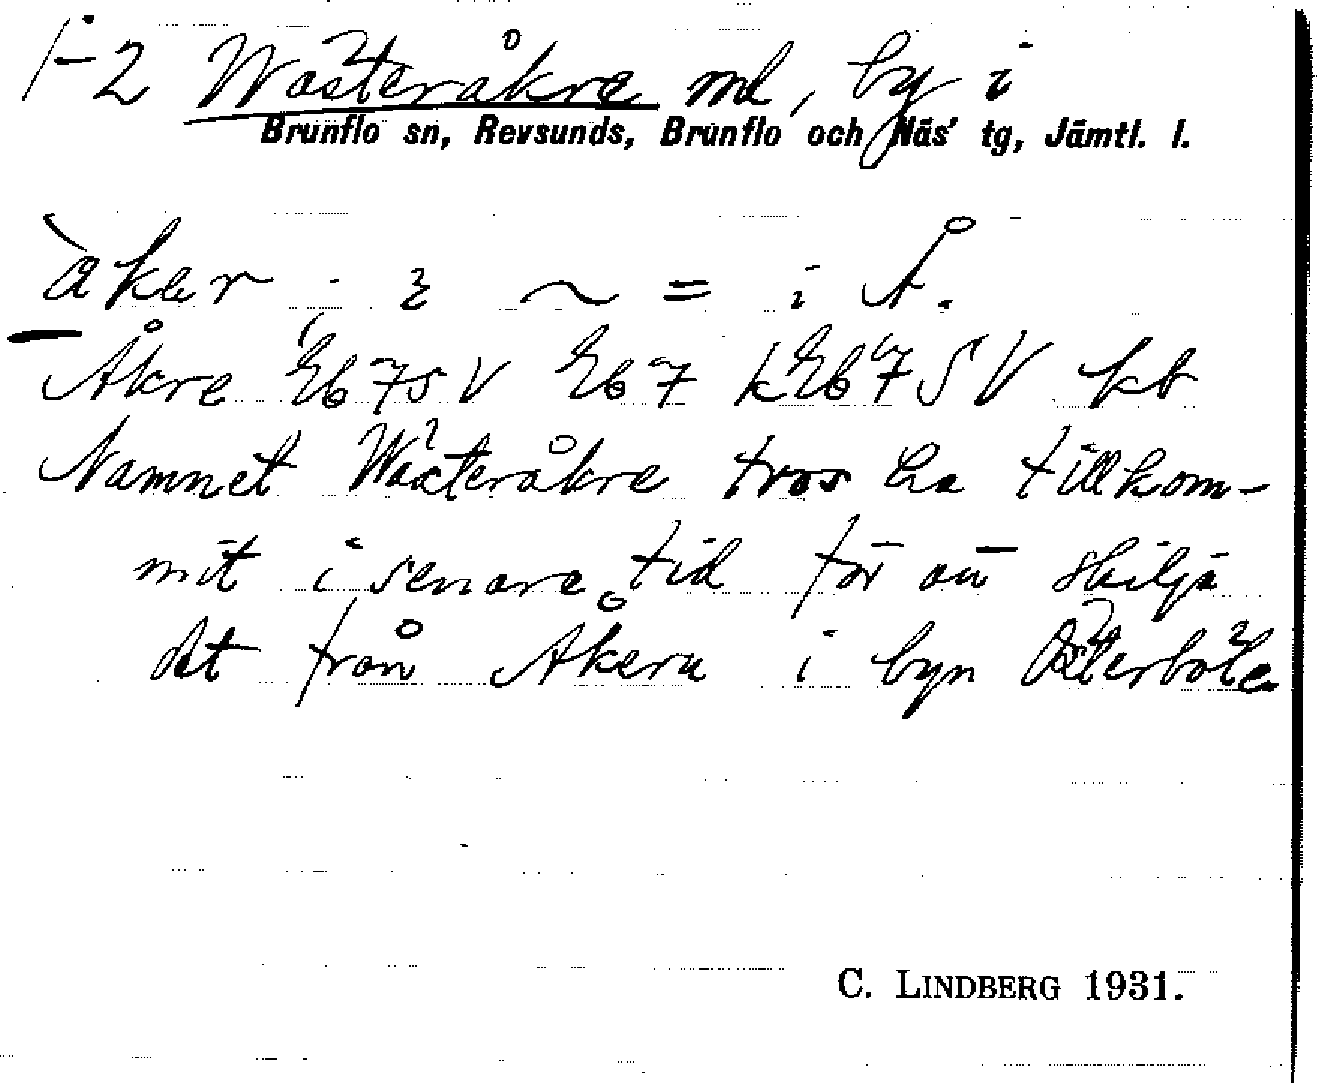 1-2 Wästeråkre ml, by i
Brunflo sn, Revsunds, Brunflo och Näs' tg, Jämtl. l.
åker ; ~ = i Å.
Åkre Eb 7 s V Eb 7 k Eb 7 S V kb
Namnet Wästeråkre tros ha tillkom-
mit i senare tid för att skilja
det från Åkern i byn Österböle
C. LINDBERG 1931.